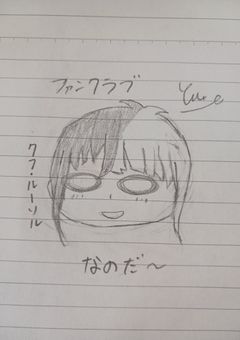 ファンクラブ
クフ・ルーソル
なのだ〜